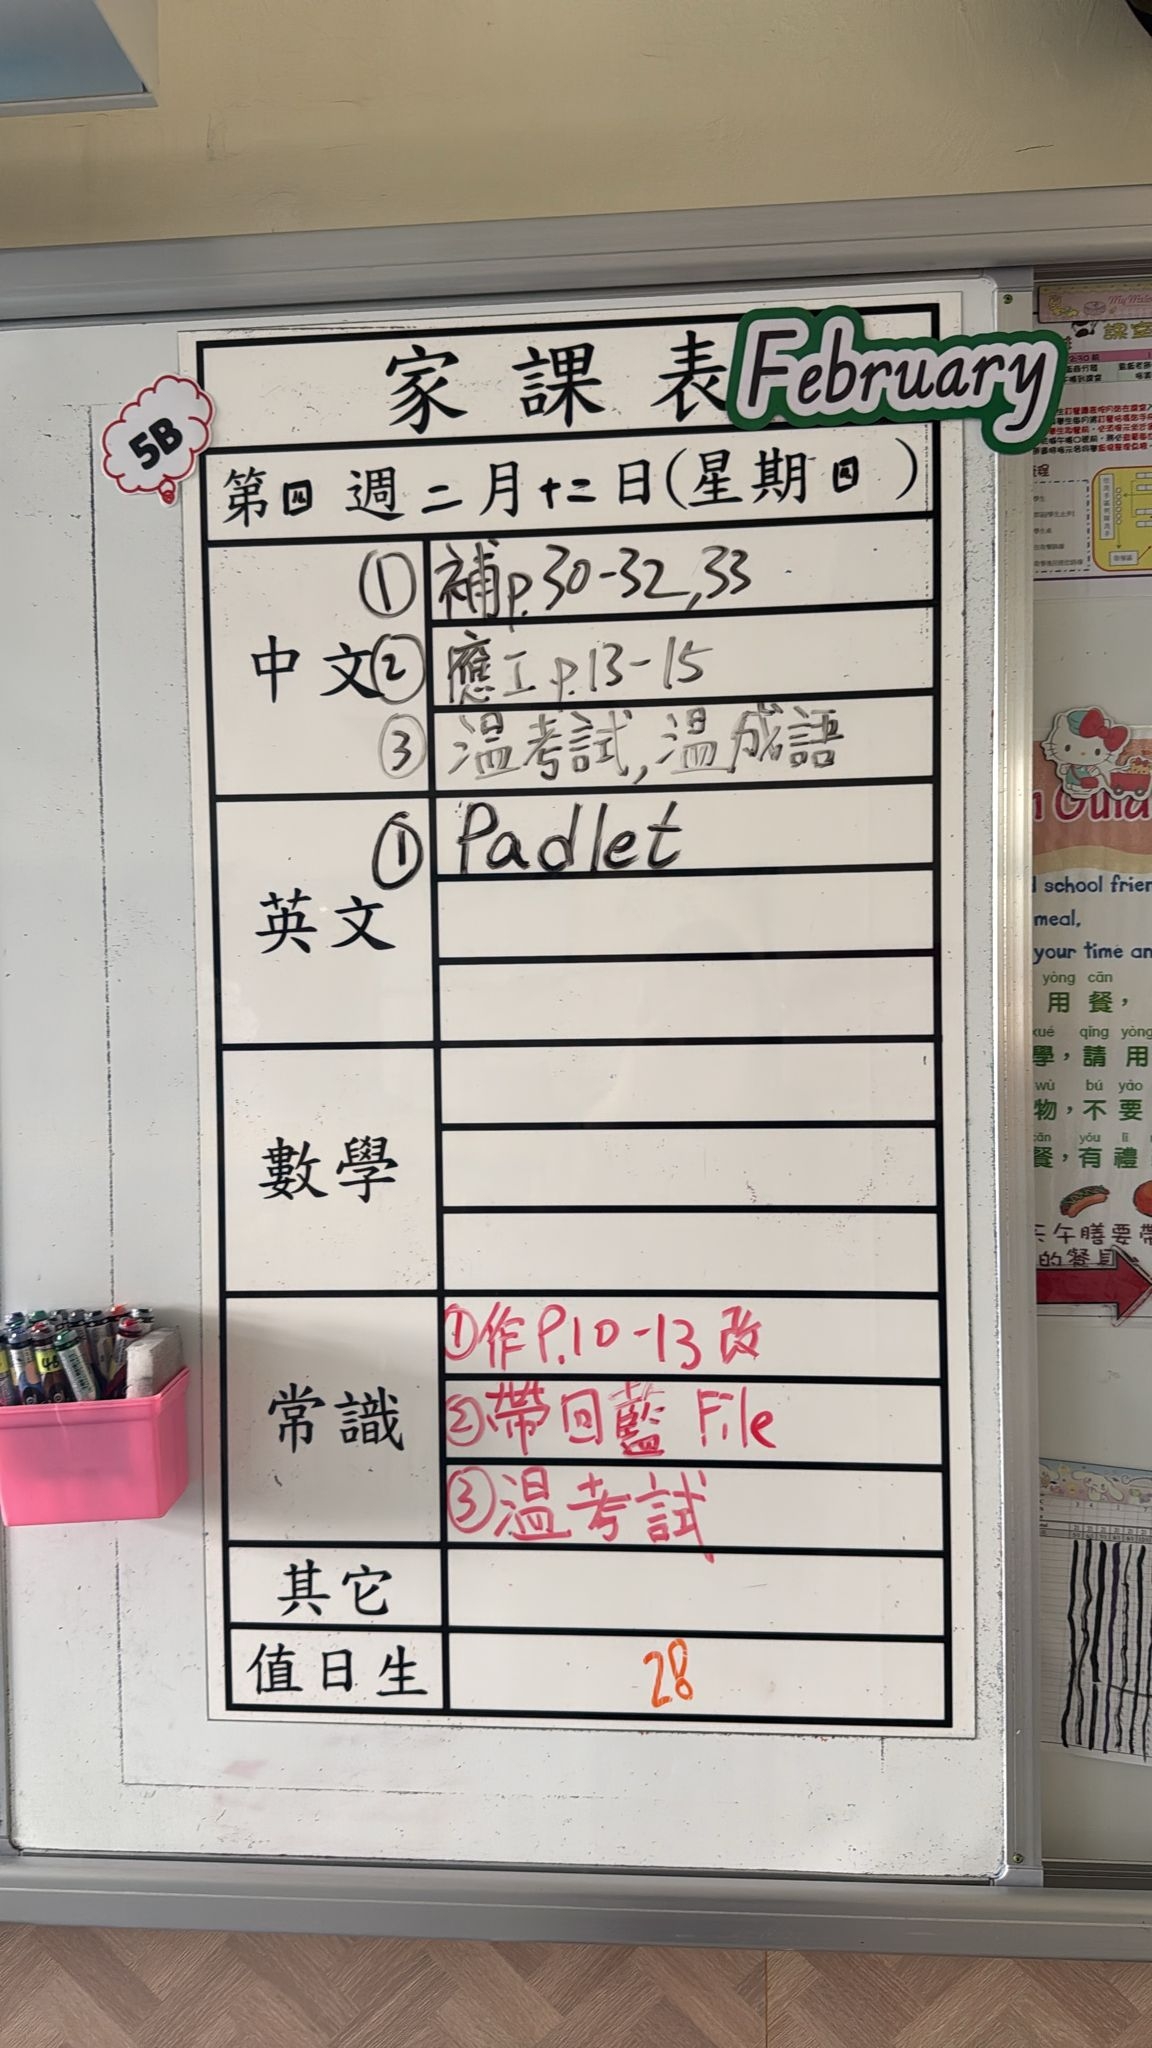 家課表
February
5B
第四週二月十二日(星期四)
中文
① 補p.30-32,33
② 應工p.13-15
③ 温考試,温成語
英文
① Padlet
數學
常識
①作P.10-13改
②帶回藍File
③温考試
其它
值日生
28
school frien
meal,
your time an
yòng cān
用餐,
xué qǐng yòng
學,請用
wù bú yào
物,不要
yǒu lǐ
餐,有禮
午膳要帶
的餐具